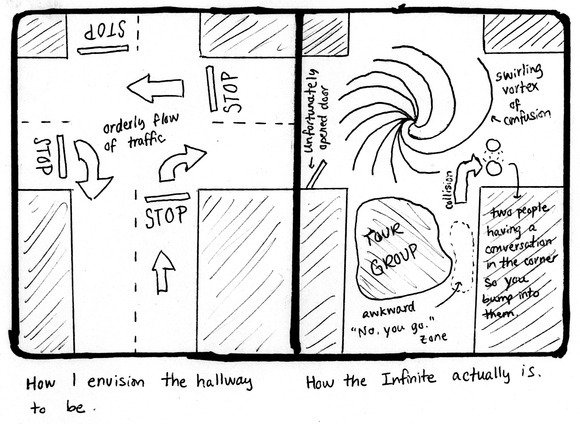 STOP
STOP
orderly flow
of traffic
STOP
STOP
How I envision the hallway
to be.
Unfortunately
opened door
swirling
vortex
of
confusion
collision
TOUR
GROUP
two people
having a
conversation
in the corner
so you
bump into
them.
awkward
"No, you go."
zone
How the Infinite actually is.